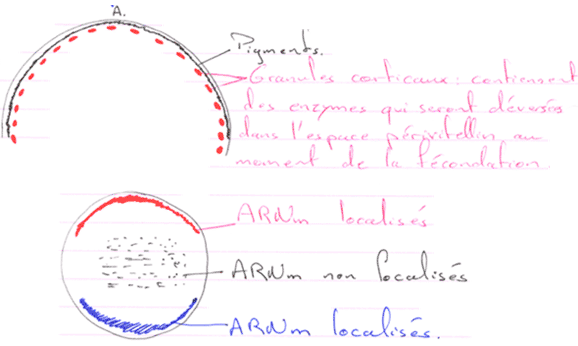 A.
Pigments.
Granules corticaux : contiennent
des enzymes qui seront déversés
dans l'espace périvitellin au
moment de la fécondation
ARNm localisés
ARNm non localisés
ARNm localisés.